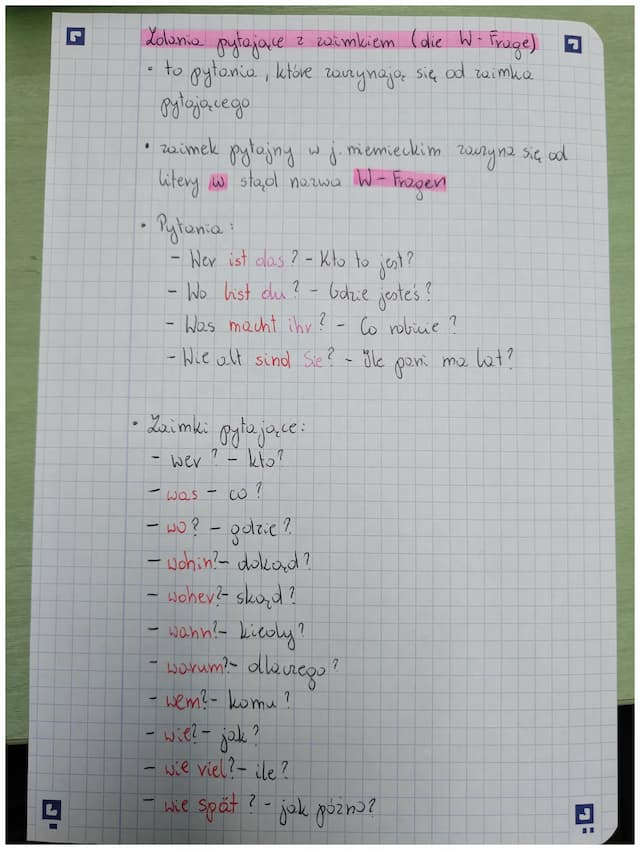 Zdania pytające z zaimkiem (die W-Frage)
• to pytania, które zaczynają się od zaimka
pytającego
• zaimek pytajny w j. niemieckim zaczyna się od
litery w stąd nazwa W-Fragen
• Pytania:
- Wer ist das? - Kto to jest?
- Wo bist du? - Gdzie jesteś?
- Was macht ihr? - Co robicie?
- Wie alt sind Sie? - Ile pani ma lat?
• Zaimki pytające:
- wer? - kto?
- was - co?
- wo? - gdzie?
- wohin? - dokąd?
- woher? - skąd?
- wann? - kiedy?
- warum? - dlaczego?
- wem? - komu?
- wie? - jak?
- wie viel? - ile?
- wie spät? - jak późno?